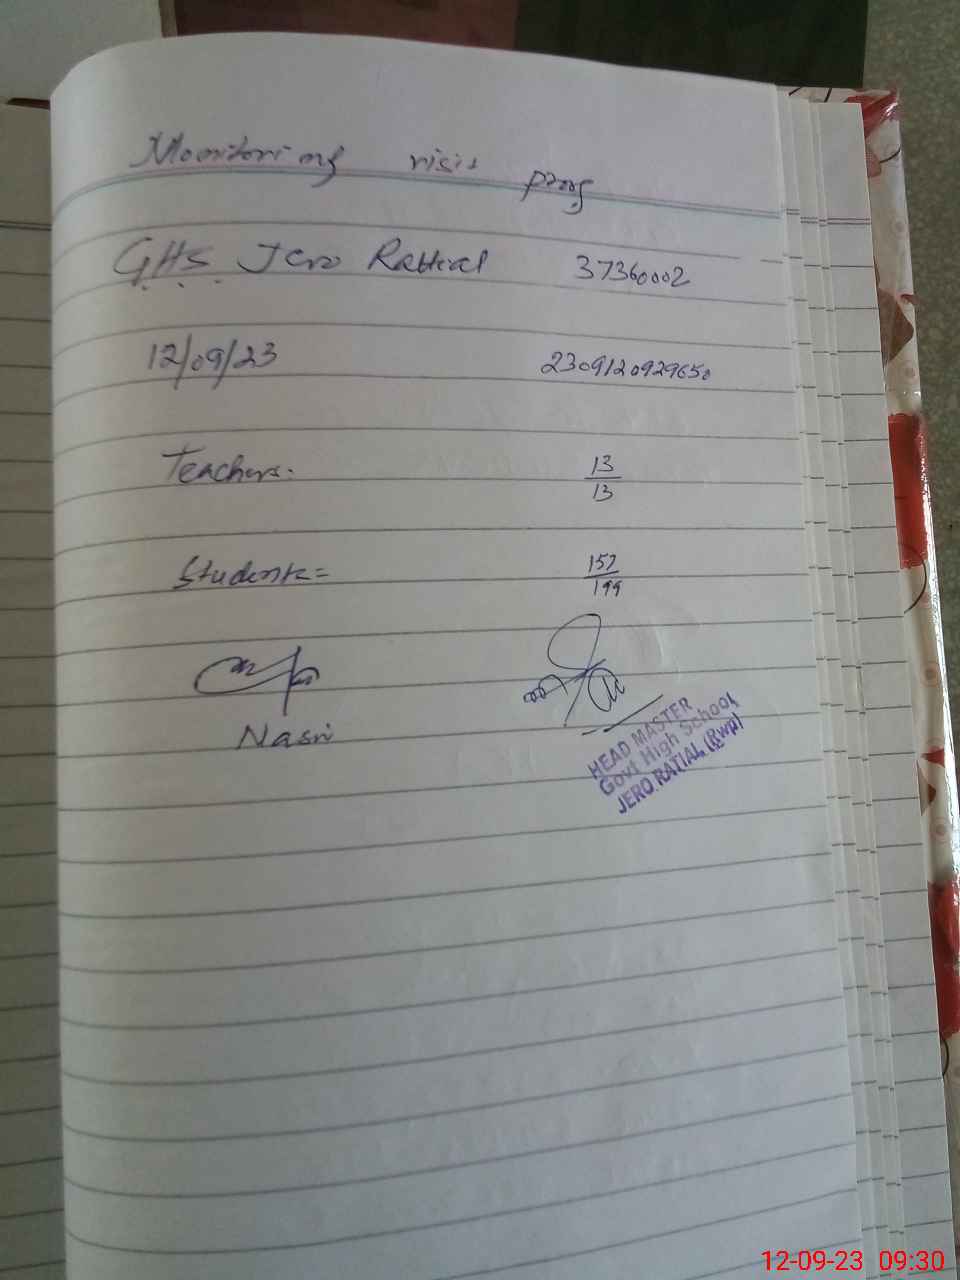 Monitoring visit
GHS Jero Rattial 37360002
12/09/23 2309120929650
Teachers. 13/13
Students= 157/199
Nasir
HEAD MASTER
Govt High School
JERO.RATIAL (Rwp)
12-09-23 09:30